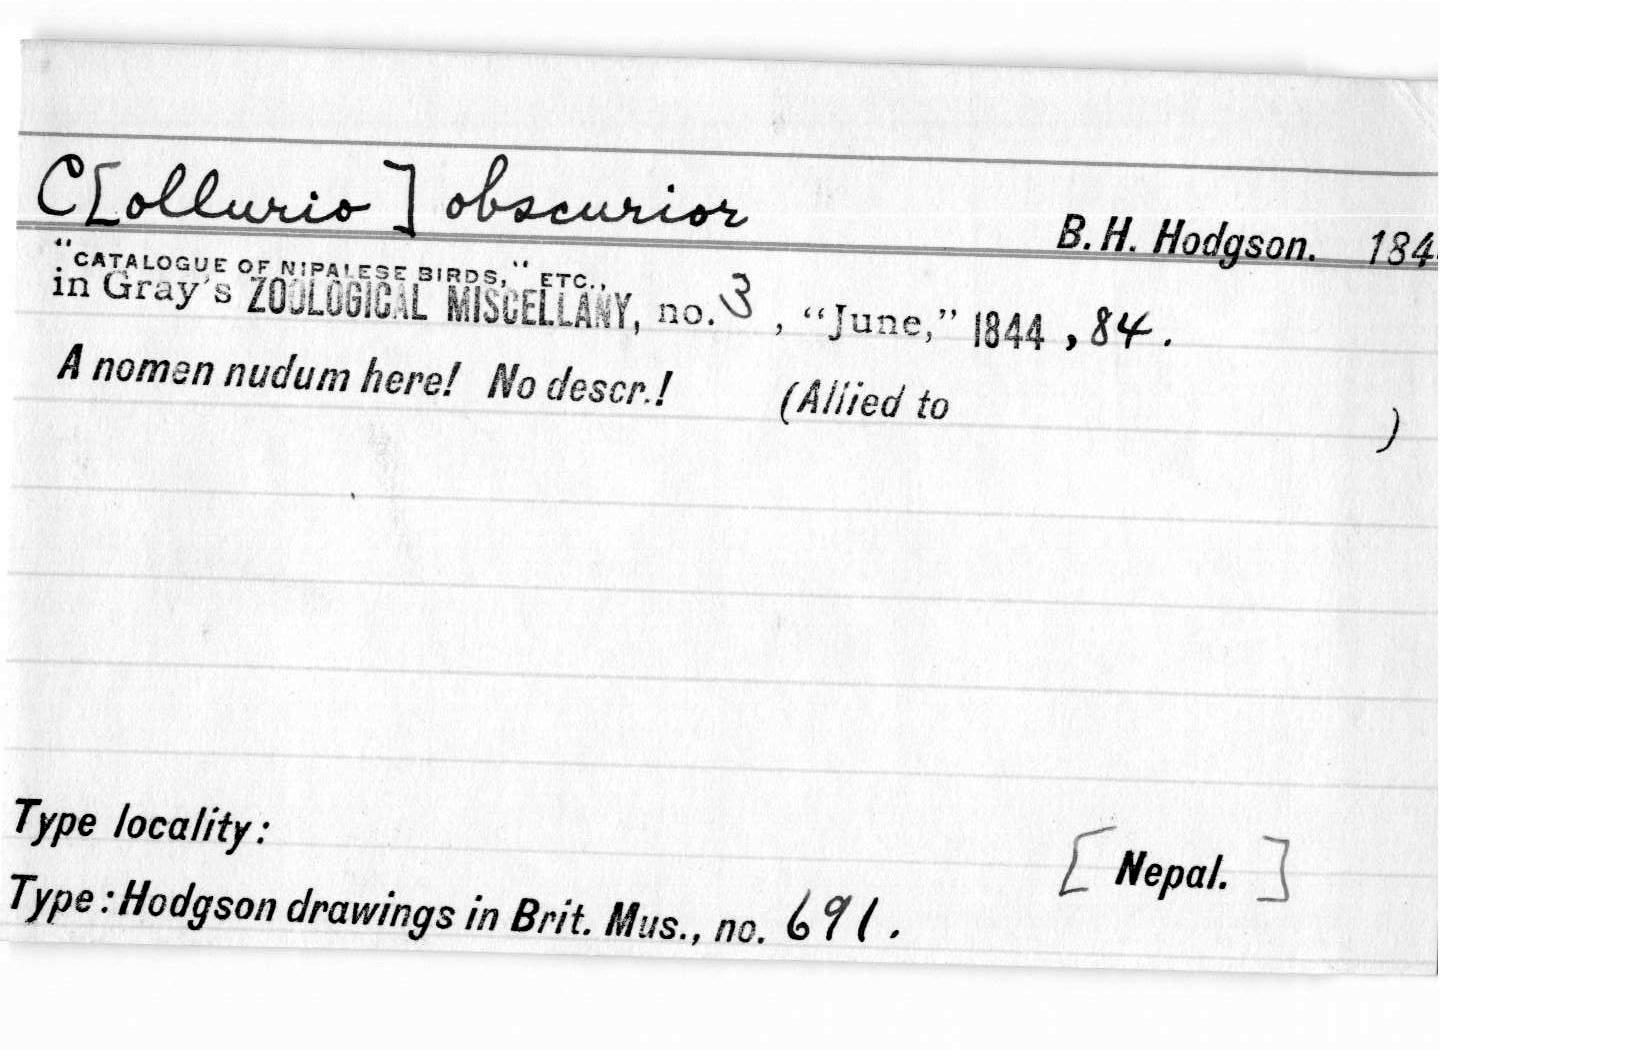 C[ollurio] obscurior B. H. Hodgson. 184
"CATALOGUE OF NIPALESE BIRDS," ETC.,
in Gray's ZOOLOGICAL MISCELLANY, no. 3, "June," 1844, 84.
A nomen nudum here! No descr.! (Allied to )
Type locality: [Nepal.]
Type: Hodgson drawings in Brit. Mus., no. 691.